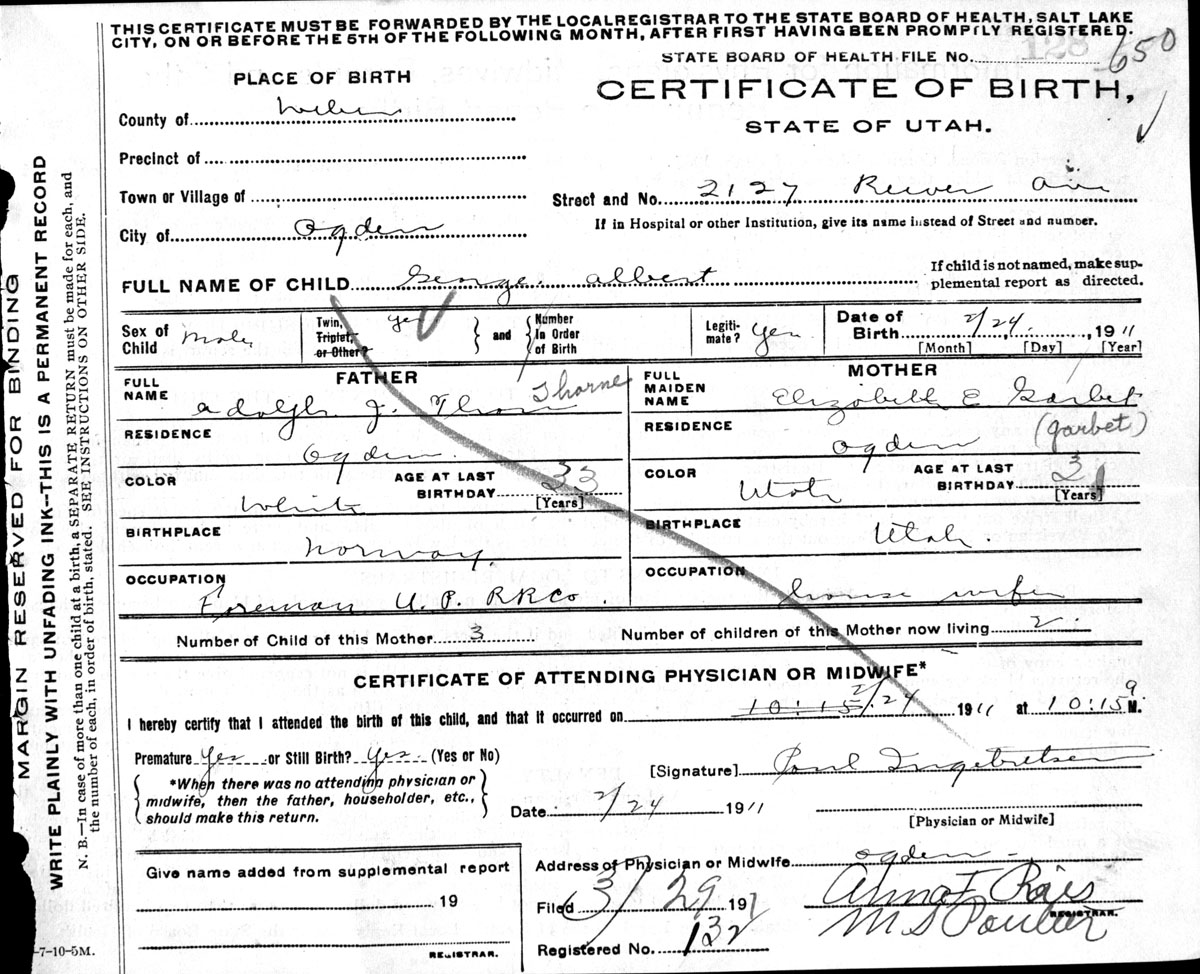 THIS CERTIFICATE MUST BE FORWARDED BY THE LOCAL REGISTRAR TO THE STATE BOARD OF HEALTH, SALT LAKE
CITY, ON OR BEFORE THE 5TH OF THE FOLLOWING MONTH, AFTER FIRST HAVING BEEN PROMPTLY REGISTERED.
STATE BOARD OF HEALTH FILE No. 128 650
PLACE OF BIRTH
CERTIFICATE OF BIRTH,
STATE OF UTAH.
County of Weber
Precinct of
Town or Village of
Street and No. 2127 Reever Ave
City of Ogden
If in Hospital or other Institution, give its name instead of Street and number.
FULL NAME OF CHILD George Albert
If child is not named, make sup-
plemental report as directed.
Sex of Child Male
Twin, Triplet, or Other? yes
and
Number In Order of Birth
Legiti- mate? Yes
Date of Birth 2/24 1911
[Month] [Day] [Year]
FATHER
FULL NAME Adolph J. Thorn Thorne
RESIDENCE Ogden
COLOR White
AGE AT LAST BIRTHDAY 33
[Years]
BIRTHPLACE Norway
OCCUPATION Foreman U. P. RR Co.
MOTHER
FULL MAIDEN NAME Elizabeth E Garbet
(Garbet)
RESIDENCE Ogden
COLOR Utah
AGE AT LAST BIRTHDAY 31
[Years]
BIRTHPLACE Utah.
OCCUPATION house wife
Number of Child of this Mother 3 Number of children of this Mother now living 2
CERTIFICATE OF ATTENDING PHYSICIAN OR MIDWIFE*
I hereby certify that I attended the birth of this child, and that it occurred on 10:15 2/24 1911 at 10:15 M.
Premature Yes or Still Birth? Yes (Yes or No)
*When there was no attending physician or
midwife, then the father, householder, etc.,
should make this return.
[Signature] Paul Ingebretsen
Date 2/24 1911
[Physician or Midwife]
Give name added from supplemental report
19
REGISTRAR.
Address of Physician or Midwife Ogden
Filed 3/29 1911
REGISTRAR.
Registered No. 132
-7-10-5M.
MARGIN RESERVED FOR BINDING
WRITE PLAINLY WITH UNFADING INK--THIS IS A PERMANENT RECORD
N. B.—In case of more than one child at a birth, a SEPARATE RETURN must be made for each, and
the number of each, in order of birth, stated. SEE INSTRUCTIONS ON OTHER SIDE.